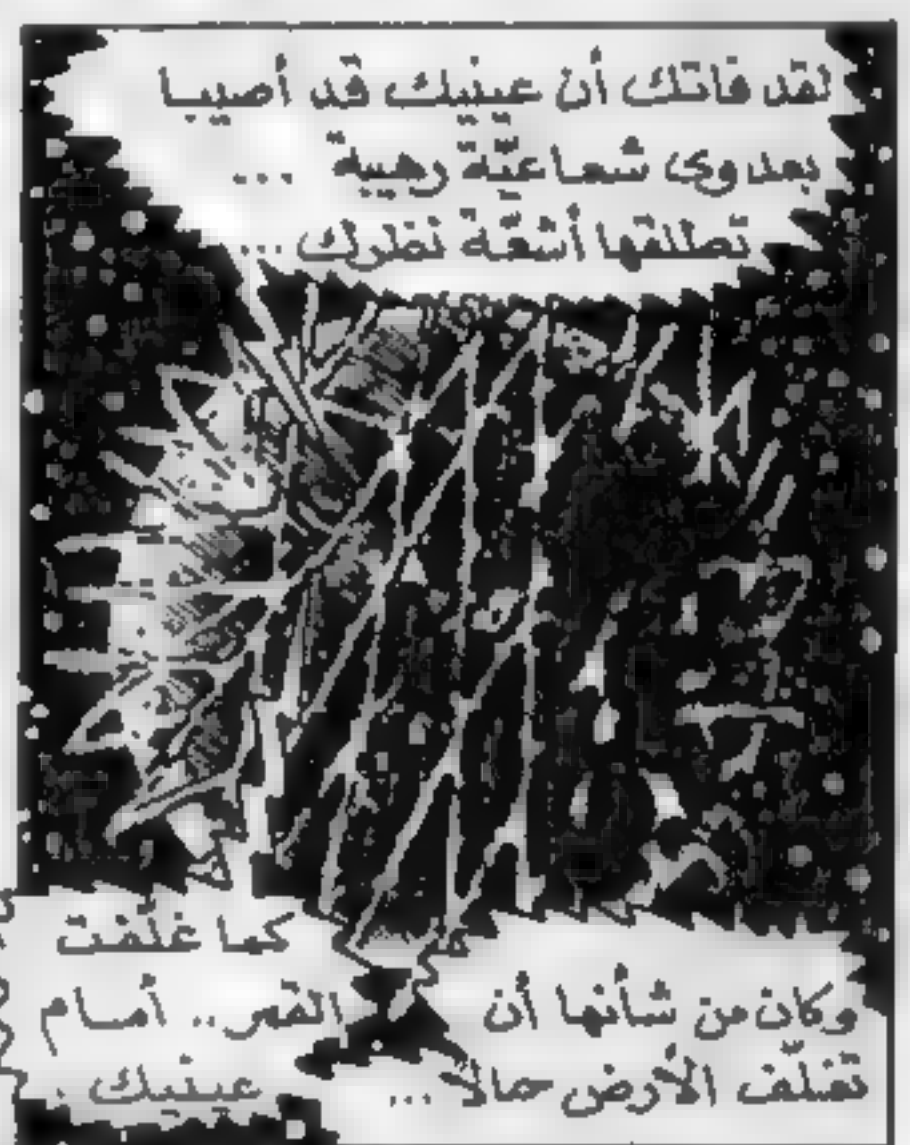 لقد فاتك أن عينيك قد أصيبا
بعدوى شعاعيّة رهيبة ...
تطلقها أشعّة نظرك ...
وكان من شأنها أن
تغلّف الأرض حالاً ...
كما غلّفت
القمر.. أمام
عينيك .